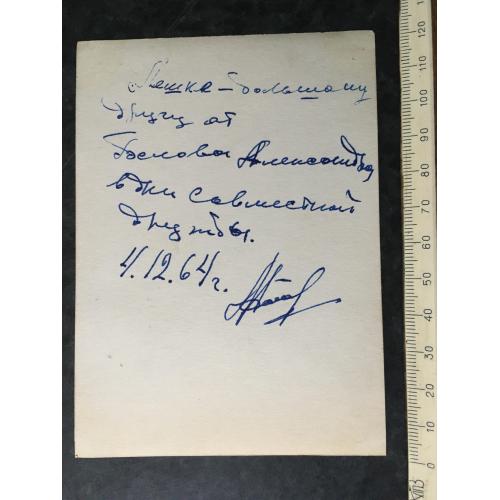 Лешке - большому
другу от
Александра
в дни совместной
дружбы.
4.12.64 г.
120
110
100
90
80
70
60
50
40
30
20
10
0